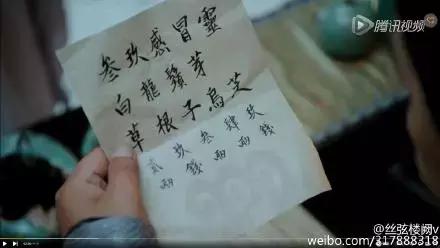 腾讯视频
叁玖感冒靈
白龍鬚芽
草根子烏芝
貳兩
玖錢
叁兩
肆兩
玖錢
@丝弦楼阙v
weibo.com/317888318